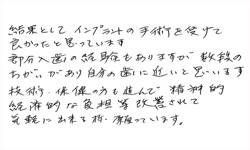 結果として インプラントの手術を受けて
良かったと思っています
部分入歯の経験もありますが 数段の
ちがいがあり自分の歯に近いと思います
技術・保健の方も進んで 精神的
経済的な負担等改善されて
気軽に出来る様・願っています。